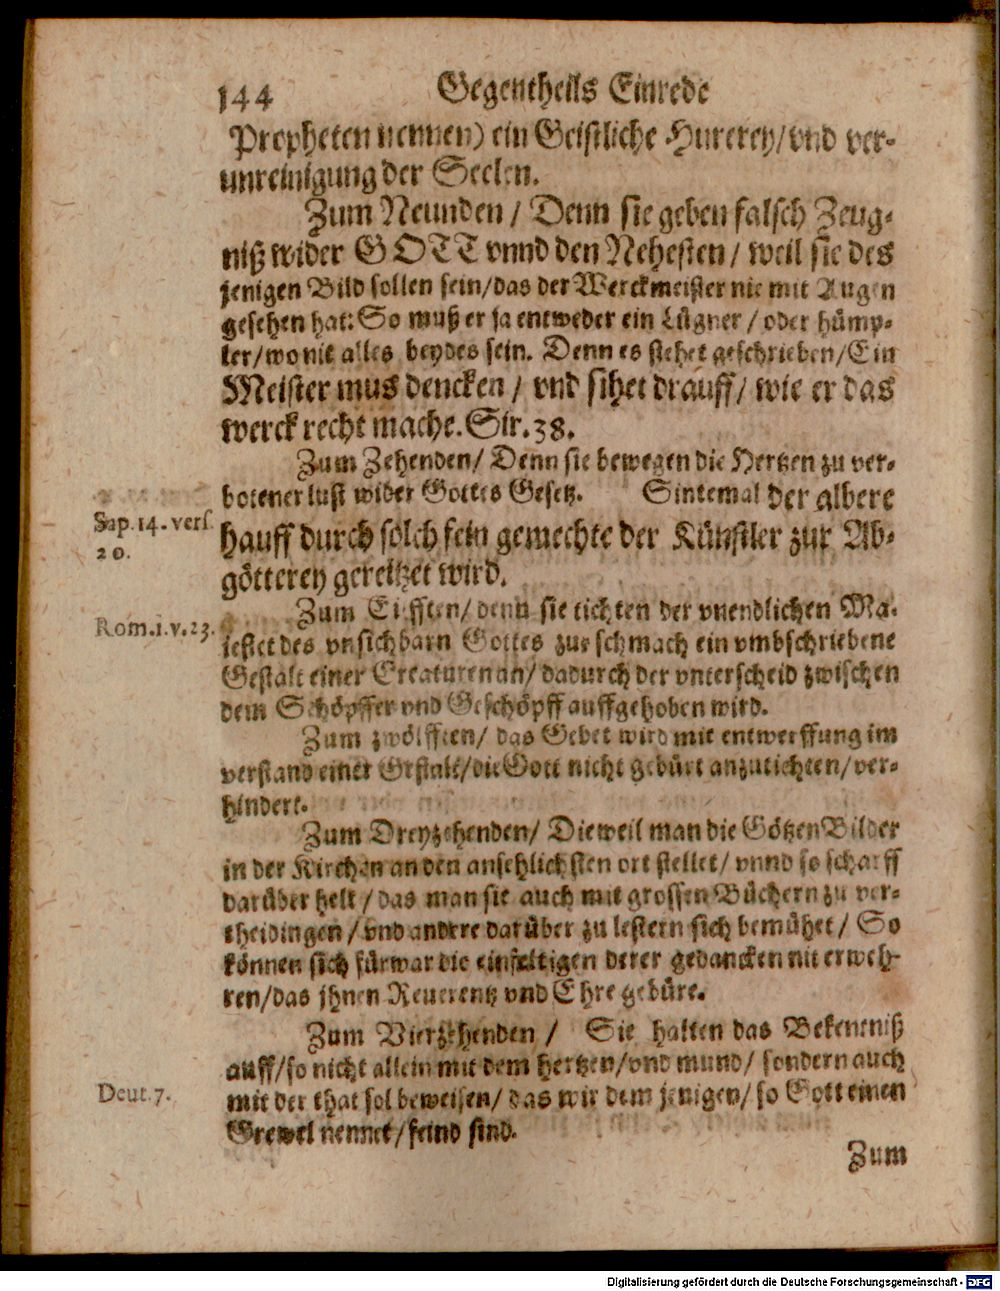 144 Gegentheils Einrede
Propheten nennen) ein Geistliche Hurerey/vnd ver-
unreinigung der Seelen.
Zum Neunden / Denn sie geben falsch Zeug-
niß wider GOTT vnnd den Nehesten / weil sie des
jenigen Bild sollen sein/das der Werckmeister nie mit Augen
gesehen hat: So muß er ja entweder ein Lügner / oder hümp-
ler/wo nit alles beydes sein. Denn es stehet geschrieben/Ein
Meister mus dencken / vnd sihet drauff/ wie er das
werck recht mache. Sir. 38.
Zum Zehenden/ Denn sie bewegen die Hertzen zu ver-
botener lust wider Gottes Gesetz. Sintemal der albere
Sap. 14. vers.
20.
hauff durch solch fein gemechte der Künstler zur Ab-
götterey gereitzet wird.
Zum Eilfften/ denn sie tichten der vnendlichen Ma-
Rom.1.v.23.
jestet des vnsichbarn Gottes zur schmach ein vmbschriebene
Gestalt einer Creaturen an/ dadurch der vnterscheid zwischen
dem Schöpffer vnd Geschöpff auffgehoben wird.
Zum zwölfften/ das Gebet wird mit entwerffung im
verstand einer Gestalt/die Gott nicht gebürt anzutichten/ver-
hindert.
Zum Dreyzehenden/ Dieweil man die Götzen Bilder
in der Kirchen an den ansehlichsten ort stellet/ vnnd so scharff
darüber helt / das man sie auch mit grossen Büchern zu ver-
theidingen / vnd andere darüber zu lestern sich bemühet / So
können sich fürwar die einfeltigen derer gedancken nit erweh-
ren/das jhnen Reuerentz vnd Ehre gebüre.
Zum Vierzehenden / Sie halten das Bekentniß
auff/so nicht allein mit dem hertzen/vnd mund/ sondern auch
Deut. 7.
mit der that sol beweisen/ das wir dem jenigen/ so Gott einen
Grewel nennet/feind sind.
Zum
Digitalisierung gefördert durch die Deutsche Forschungsgemeinschaft - DFG